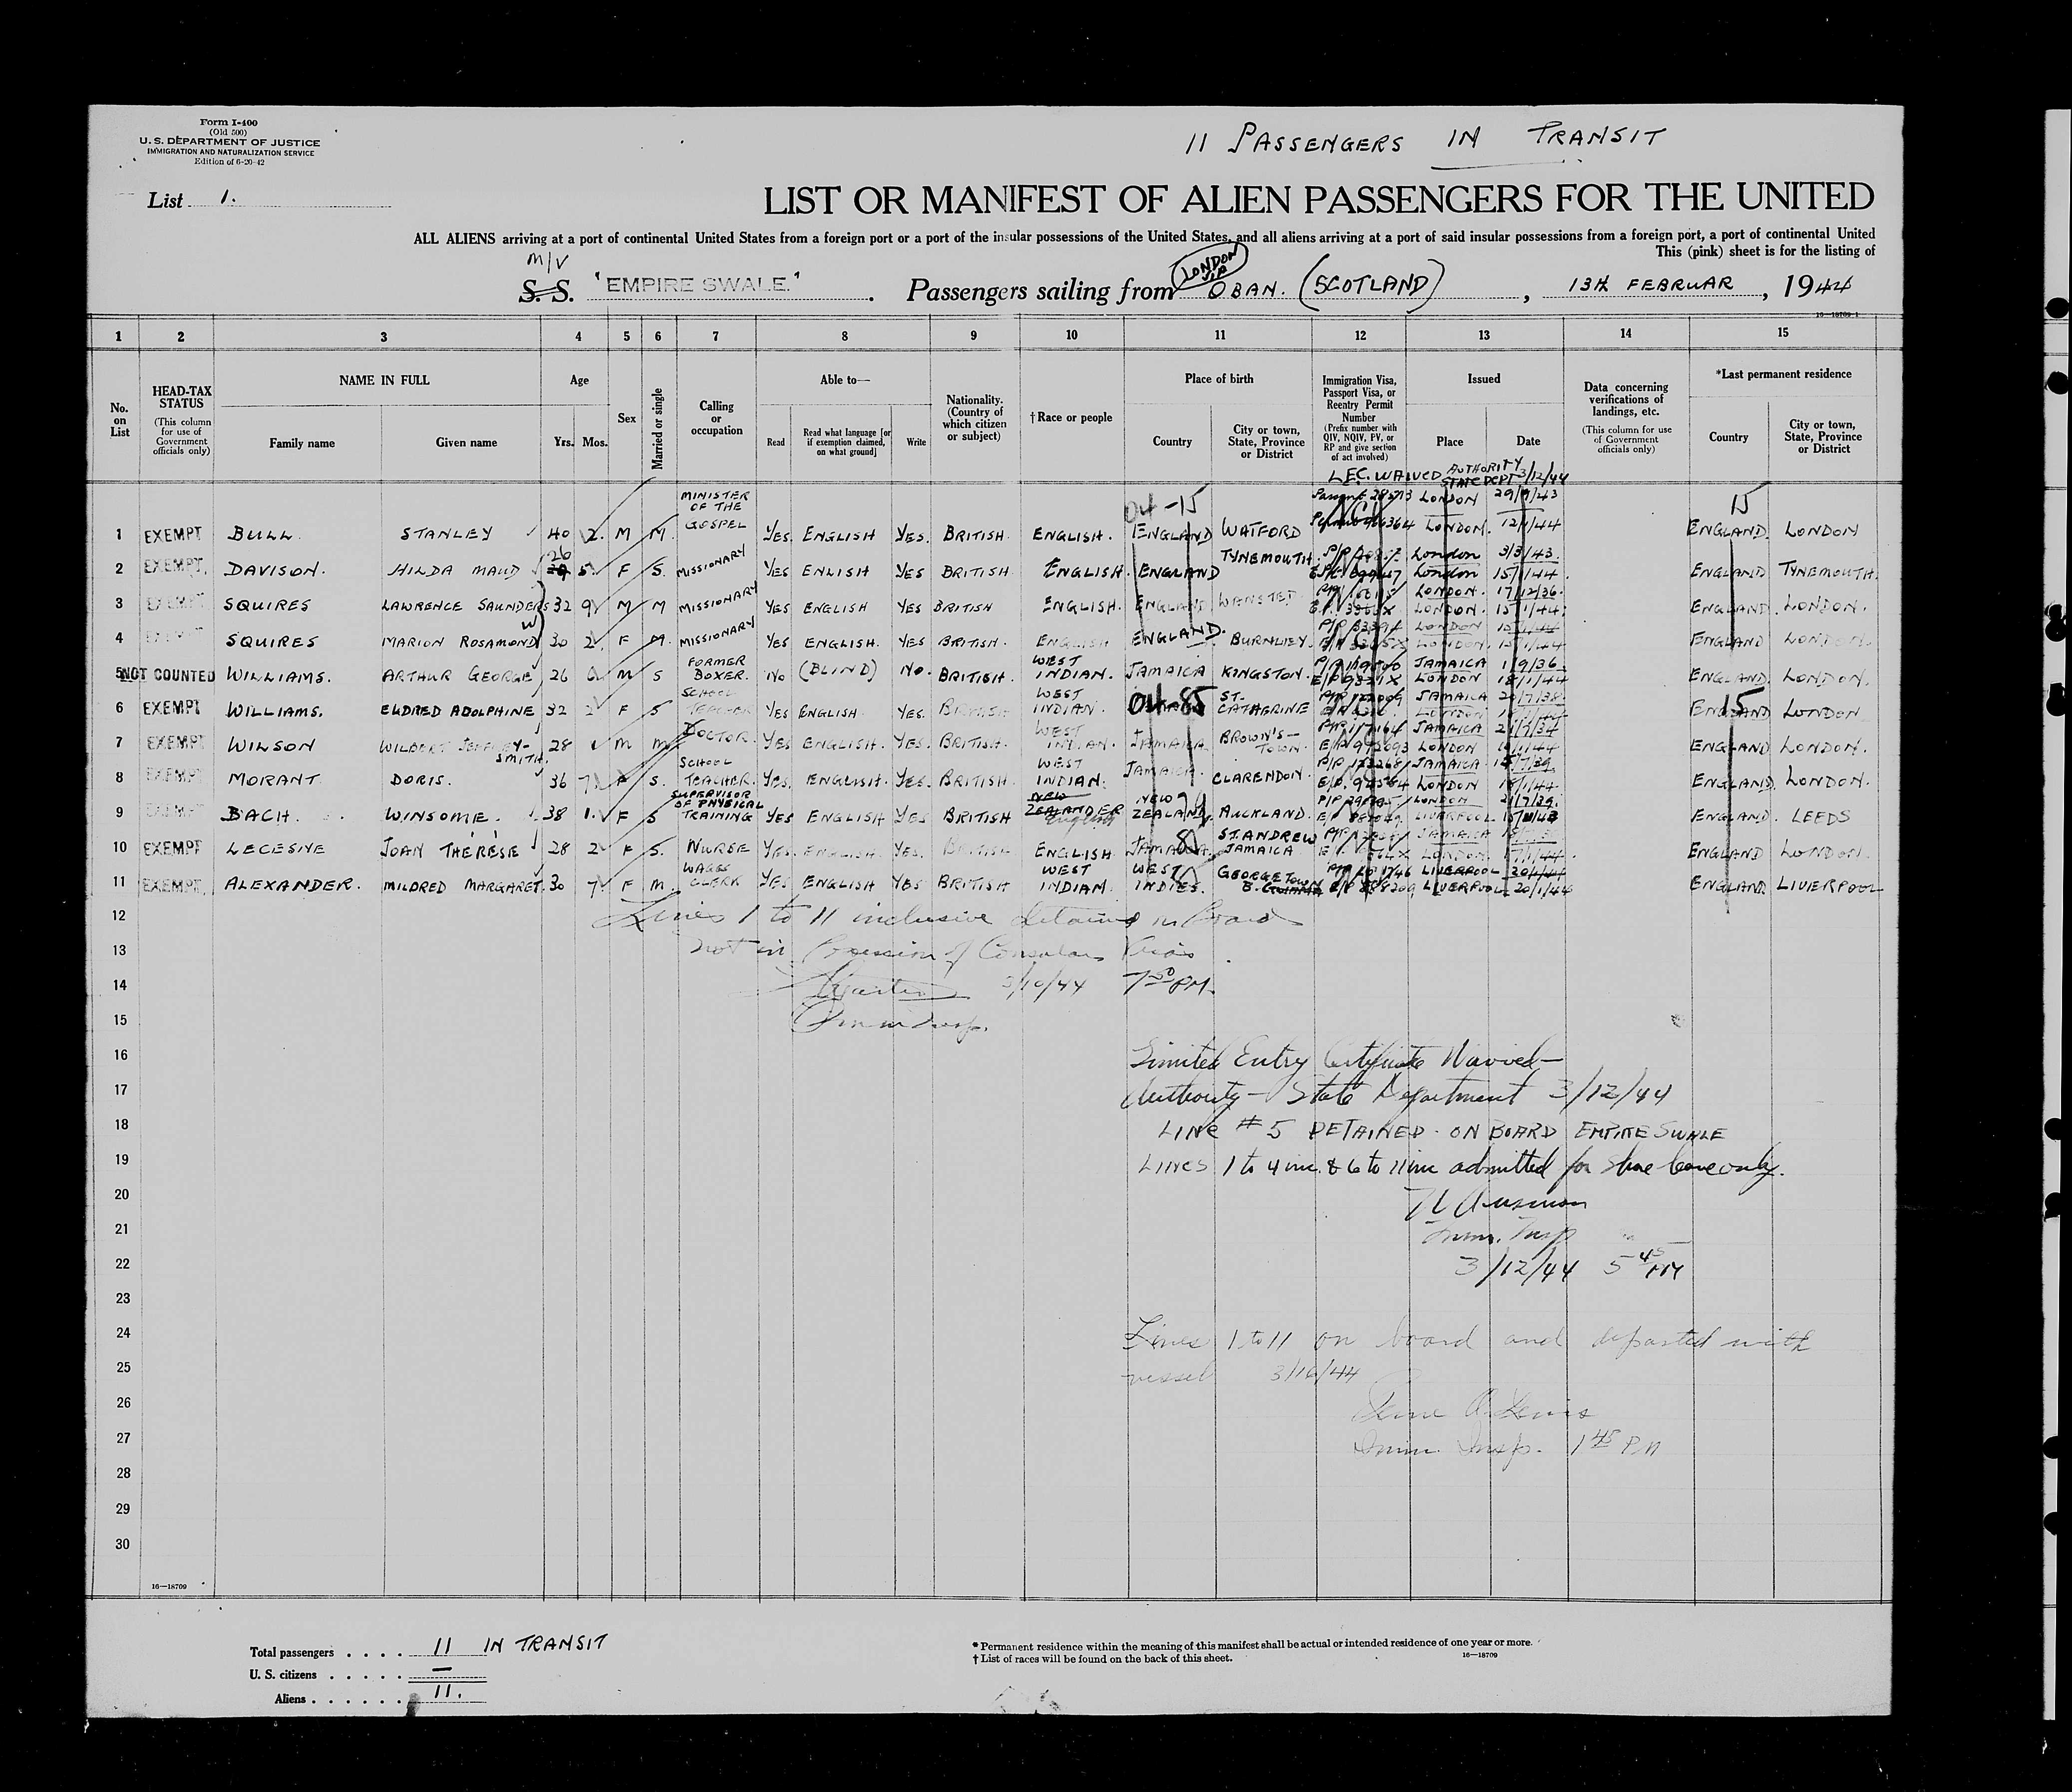 Form I-400
(Old 500)
U. S. DEPARTMENT OF JUSTICE
IMMIGRATION AND NATURALIZATION SERVICE
Edition of 6-20-42
11 PASSENGERS IN TRANSIT
List 1.
LIST OR MANIFEST OF ALIEN PASSENGERS FOR THE UNITED
ALL ALIENS arriving at a port of continental United States from a foreign port or a port of the insular possessions of the United States, and all aliens arriving at a port of said insular possessions from a foreign port, a port of continental United
This (pink) sheet is for the listing of
M/V
LONDON VIA
S. S. "EMPIRE SWALE." Passengers sailing from OBAN. (SCOTLAND), 13th FEBRUAR, 1944
16—18709-1
1 2 3 4 5 6 7 8 9 10 11 12 13 14 15
No. on List
HEAD-TAX STATUS
(This column for use of Government officials only)
NAME IN FULL
Family name Given name
Age
Yrs. Mos.
Sex
Married or single
Calling or occupation
Able to—
Read Read what language [or if exemption claimed, on what ground] Write
Nationality. (Country of which citizen or subject)
† Race or people
Place of birth
Country City or town, State, Province or District
Immigration Visa, Passport Visa, or Reentry Permit Number
(Prefix number with QIV, NQIV, PV, or RP and give section of act involved)
Issued
Place Date
Data concerning verifications of landings, etc.
(This column for use of Government officials only)
*Last permanent residence
Country City or town, State, Province or District
L.E.C. WAIVED AUTHORITY STATE DEPT 3/12/44
04-15 15
1 EXEMPT BULL STANLEY 40 2 M M. MINISTER OF THE GOSPEL YES. ENGLISH YES. BRITISH. ENGLISH. ENGLAND WATFORD LONDON 29/9/43 LONDON. 12/1/44 ENGLAND LONDON
2 EXEMPT. DAVISON. HILDA MAUD 26 5 F S. MISSIONARY YES ENLISH YES BRITISH ENGLISH. ENGLAND TYNEMOUTH. London 3/3/43. London 15/1/44. ENGLAND TYNEMOUTH.
3 EXEMPT SQUIRES LAWRENCE SAUNDERS 32 9 M M MISSIONARY YES ENGLISH YES BRITISH ENGLISH. ENGLAND WANSTED LONDON. 17/12/36. LONDON. 15/1/44. ENGLAND. LONDON.
4 SQUIRES MARION ROSAMOND W 30 2 F M. MISSIONARY YES ENGLISH. YES BRITISH. ENGLISH ENGLAND. BURNLEY. LONDON LONDON. 15/1/44. ENGLAND LONDON.
5 NOT COUNTED WILLIAMS. ARTHUR GEORGE 26 M S FORMER BOXER. NO (BLIND) NO. BRITISH. WEST INDIAN. JAMAICA KINGSTON. JAMAICA 1/9/36. LONDON 18/1/44 ENGLAND. LONDON.
6 EXEMPT WILLIAMS. ELDRED ADOLPHINE 32 2 F S SCHOOL TEACHER YES ENGLISH YES. BRITISH WEST INDIAN. 04-85 ST. CATHERINE JAMAICA LONDON ENGLAND 15 LONDON
7 EXEMPT WILSON WILBERT JEFFREY-SMITH. 28 M M DOCTOR. YES ENGLISH. YES. BRITISH. WEST INDIAN. JAMAICA BROWN'S-TOWN. JAMAICA LONDON ENGLAND LONDON.
8 EXEMPT MORANT DORIS. 36 7 F S. SCHOOL TEACHER. YES. ENGLISH. YES. BRITISH. WEST INDIAN. JAMAICA. CLARENDON. JAMAICA 15/7/39. LONDON ENGLAND. LONDON.
9 EXEMPT BACH. WINSOME. 38 1. F S SUPERVISOR OF PHYSICAL TRAINING YES ENGLISH YES BRITISH NEW ZEALANDER English NEW ZEALAND. AUCKLAND. LONDON 21/7/39. LIVERPOOL ENGLAND. LEEDS
10 EXEMPT LECESNE JOAN THÉRÈSE 28 2 F S. NURSE YES. ENGLISH YES. BRITISH ENGLISH JAMAICA. ST. ANDREW JAMAICA JAMAICA LONDON 17/1/44. ENGLAND LONDON.
11 EXEMPT. ALEXANDER. MILDRED MARGARET. 30 7 F M. WAGES CLERK YES ENGLISH YES BRITISH WEST INDIAN. WEST INDIES. GEORGETOWN B. GUIANA LIVERPOOL LIVERPOOL 20/1/44 ENGLAND LIVERPOOL
12 Lines 1 to 11 inclusive detained on Board
13 not in Possession of Consular Visas.
14 3/10/44 7 50 PM.
15 Immin Insp.
16 Limited Entry Certificate Waived—
17 Authority— State Department 3/12/44
18 LINE #5 DETAINED ON BOARD EMPIRE SWALE
19 LINES 1 to 4 inc. & 6 to 11 inc admitted for shore leave only.
20
21 Imm. Insp
22 3/12/44 5 45 PM
23
24 Lines 1 to 11 on board and departed with
25 vessel 3/16/44
26 Lewis
27 Immi. Insp. 1 45 P.M
28
29
30
16—18709
Total passengers . . . . 11 IN TRANSIT
U. S. citizens . . . . . —
Aliens . . . . . . 11.
* Permanent residence within the meaning of this manifest shall be actual or intended residence of one year or more.
† List of races will be found on the back of this sheet. 16—18709